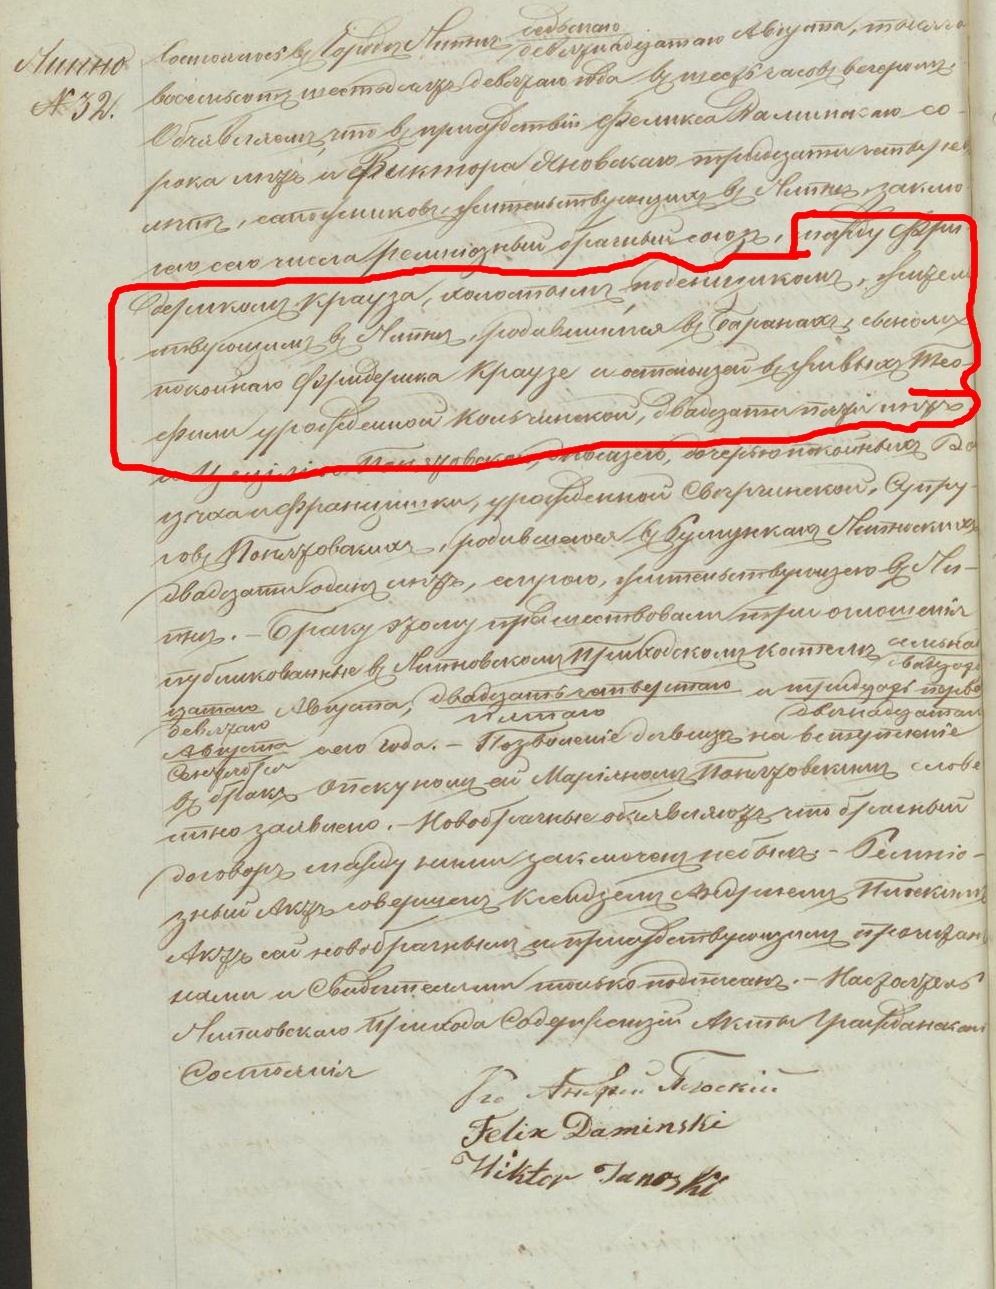 Липно
№ 32.
Состоялось въ Городѣ Липнѣ седьмаго
девятнадцатаго Августа, тысяча
восемьсотъ шестьдесятъ девятаго года въ шесть часовъ вечеромъ.
Объявляемъ, что въ присудствіи Феликса Даминскаго со-
рока лѣтъ и Виктора Яновскаго тридзати четырехъ
лѣтъ, сапожниковъ, жительствующихъ въ Липнѣ, заклю-
чено сего числа религіозный брачный союзъ, между Фри-
дерикомъ Краузе, холостымъ, поденщикомъ, житель-
ствующимъ въ Липнѣ, родившимся въ Баранахъ, сыномъ
покойнаго Фридерика Краузе и остающей въ живыхъ Тео-
фили урожденной Кольчинской, двадцати пяти лѣтъ
и Понятовскою, дочерью покойныхъ
и Францишки, урожденной Сверчинской, Супру-
говъ Понятовскихъ, родившеюся въ Румункахъ Липновскихъ
двадцати одинъ лѣтъ, жительствующею въ Ли-
пнѣ. – Браку этому предшествовали три оглашенія
публикованные въ Липновскомъ Приходскомъ Костелѣ
цатаго Августа, двадзать четвертаго и тридцать перва
девятаго пятаго двенадцатаго
Августа сего года. – Позволеніе дѣвицѣ на вступленіе
Сентября
въ бракъ опекуномъ ей Маріяномъ Понятовскимъ слове
сно заявлено. – Новобрачные объявляютъ что брачный
договоръ между ними заключенъ небылъ – Религіо-
зный Актъ совершенъ Ксендземъ Андреемъ Плоскимъ
Актъ сей новобрачнымъ и присудствующимъ прочитанъ
нами и Свидѣтелями только подписанъ. – Настоятель
Липновскаго Прихода Содержающій Акты Гражданскаго
Состоянія
Кс Андрей Плоскій
Felix Daminski
Wiktor Janoski